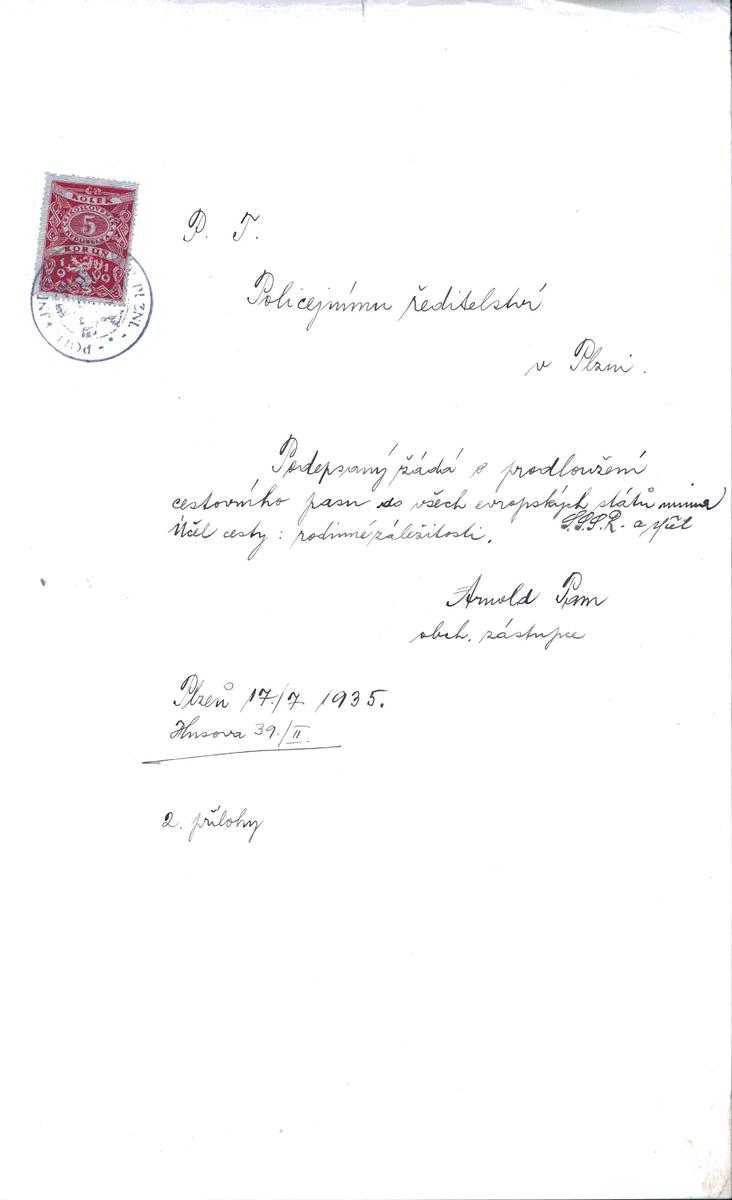 ČR
KOLEK
ČESKOSLOVENSKÁ
5
REPUBLIKA
KORUN
1919
PLZNI.
P. T.
Policejnímu ředitelství
v Plzni.
Podepsaný žádá o prodloužení
cestovního pasu do všech evropských států mimo
S.S.S.R. a
Účel cesty: rodinné záležitosti.
Arnold Pam
obch. zástupce
Plzeň 17./7. 1935.
Husova 39./II.
2. přílohy